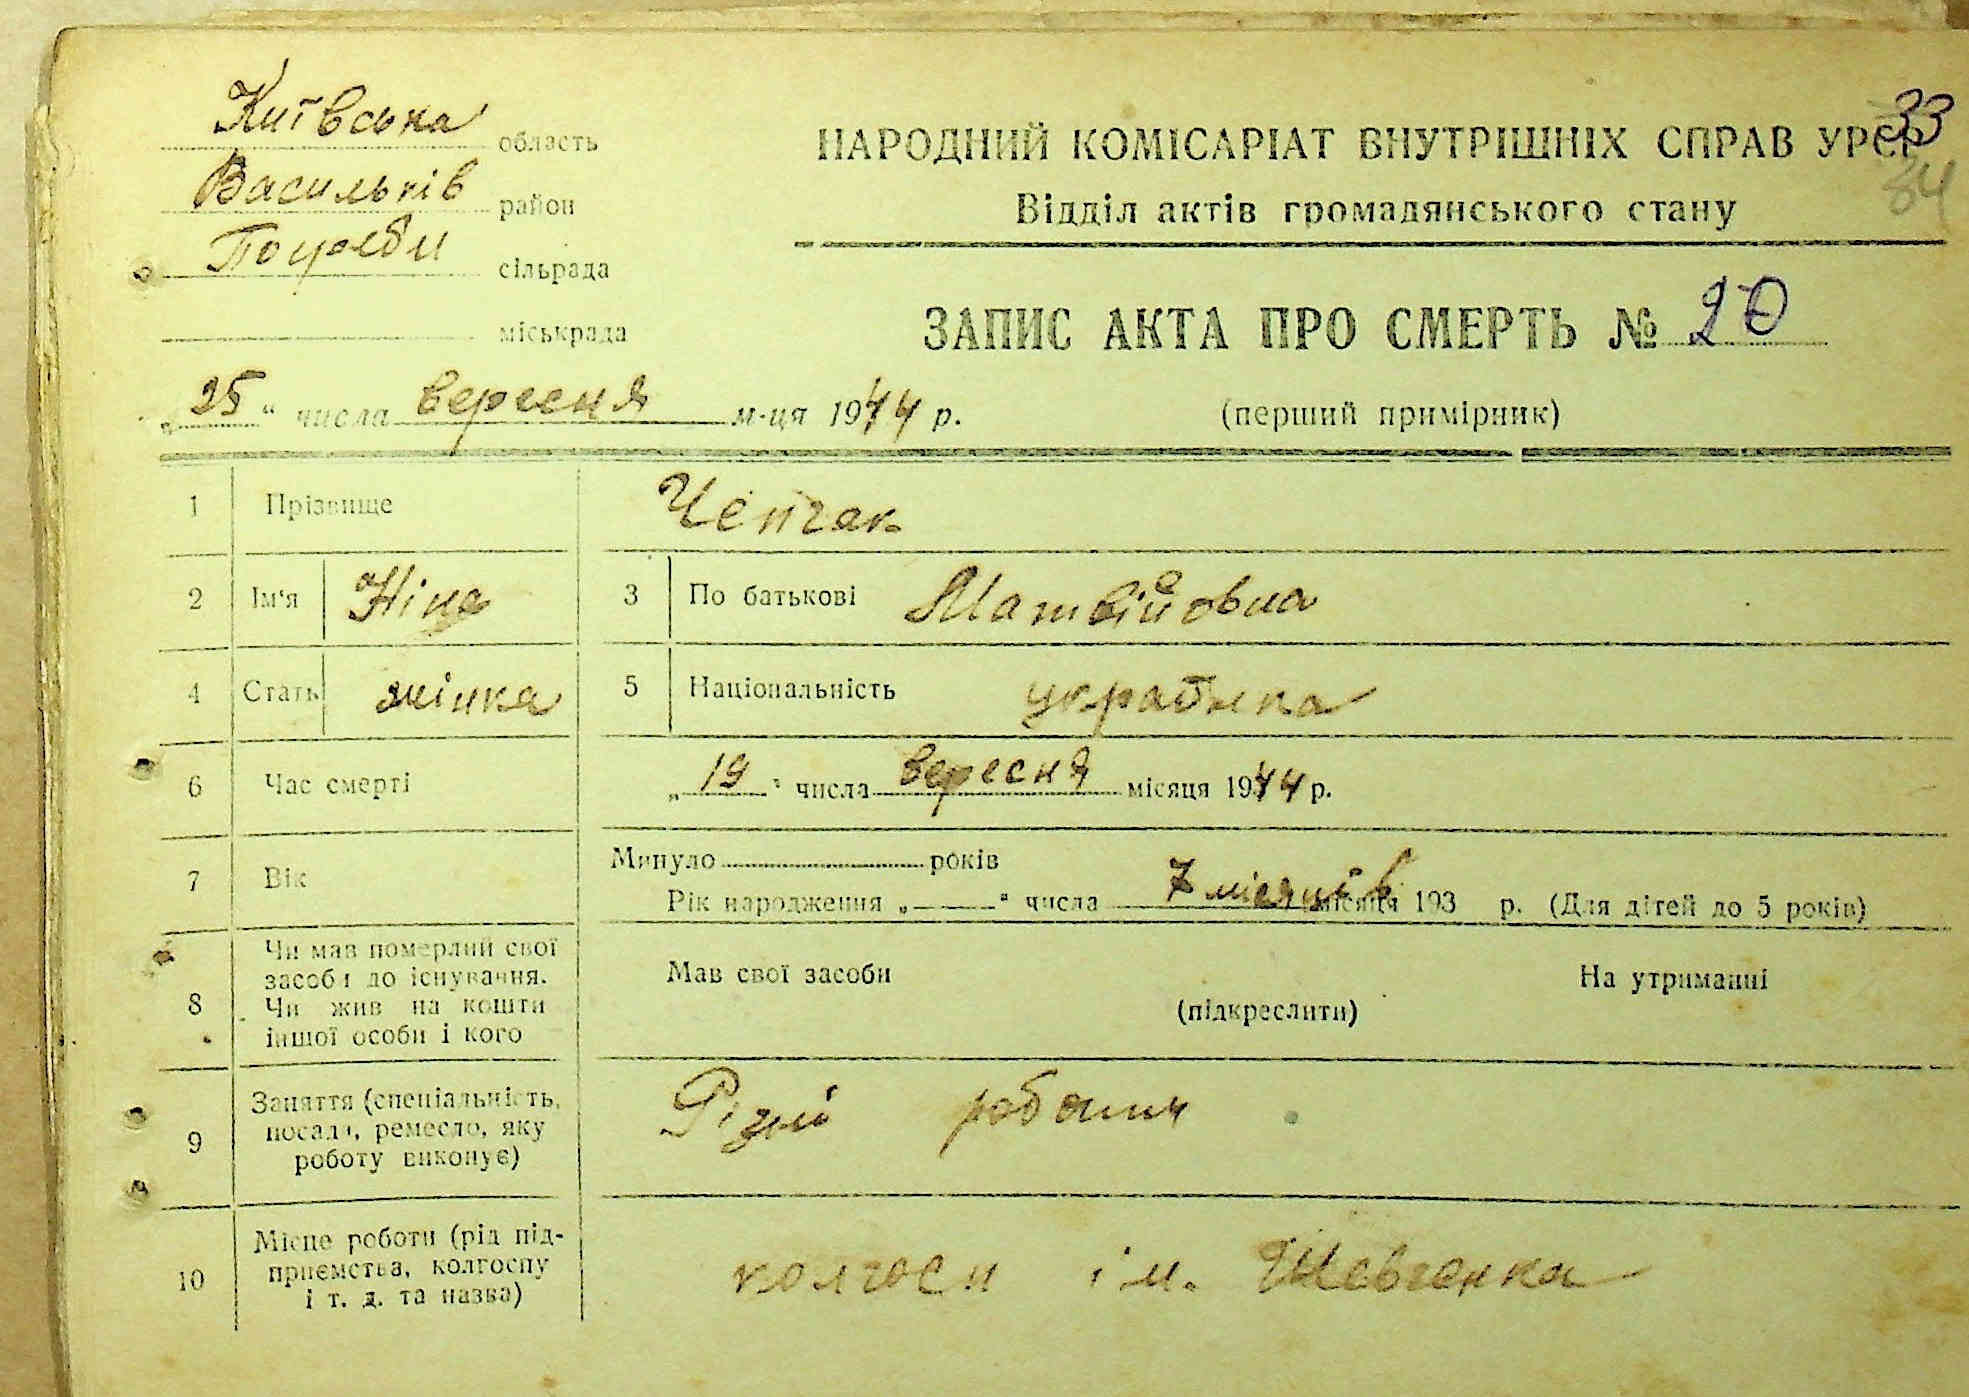 Київська область
Васильків район
сільрада
міськрада
НАРОДНИЙ КОМІСАРІАТ ВНУТРІШНІХ СПРАВ УРСР
33
34
Відділ актів громадянського стану
ЗАПИС АКТА ПРО СМЕРТЬ № 20
„25“ числа вересня м-ця 1944 р.
(перший примірник)
1 Прізвище Чепчак
2 Ім'я Ніна 3 По батькові Матвійовна
4 Стать жінка 5 Національність українка
6 Час смерті „19“ числа вересня місяця 1944 р.
7 Вік Минуло років
Рік народження „—“ числа 7 місяців місяця 193 р. (Для дітей до 5 років)
8 Чи мав померлий свої засоби до існування. Чи жив на кошти іншої особи і кого
Мав свої засоби (підкреслити) На утриманні
9 Заняття (спеціальність, посада, ремесло, яку роботу виконує) Різні роботи
10 Місце роботи (рід підприємства, колгоспу і т. д. та назва) колгосп ім. Шевченка